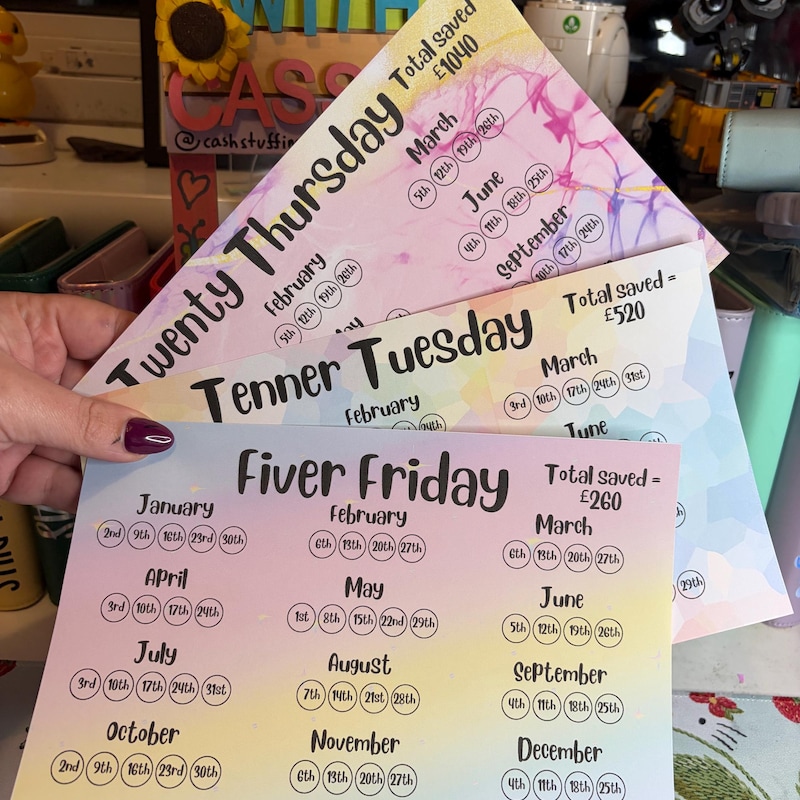 WITH
CASS
@cashstuffin
Twenty Thursday
Total saved
£1040
February
5th 12th 19th 26th
March
5th 12th 19th 26th
June
4th 11th 18th 25th
September
10th 17th 24th
Tenner Tuesday
Total saved =
£520
February
24th
March
3rd 10th 17th 24th 31st
June
29th
Fiver Friday
Total saved =
£260
January
2nd 9th 16th 23rd 30th
February
6th 13th 20th 27th
March
6th 13th 20th 27th
April
3rd 10th 17th 24th
May
1st 8th 15th 22nd 29th
June
5th 12th 19th 26th
July
3rd 10th 17th 24th 31st
August
7th 14th 21st 28th
September
4th 11th 18th 25th
October
2nd 9th 16th 23rd 30th
November
6th 13th 20th 27th
December
4th 11th 18th 25th